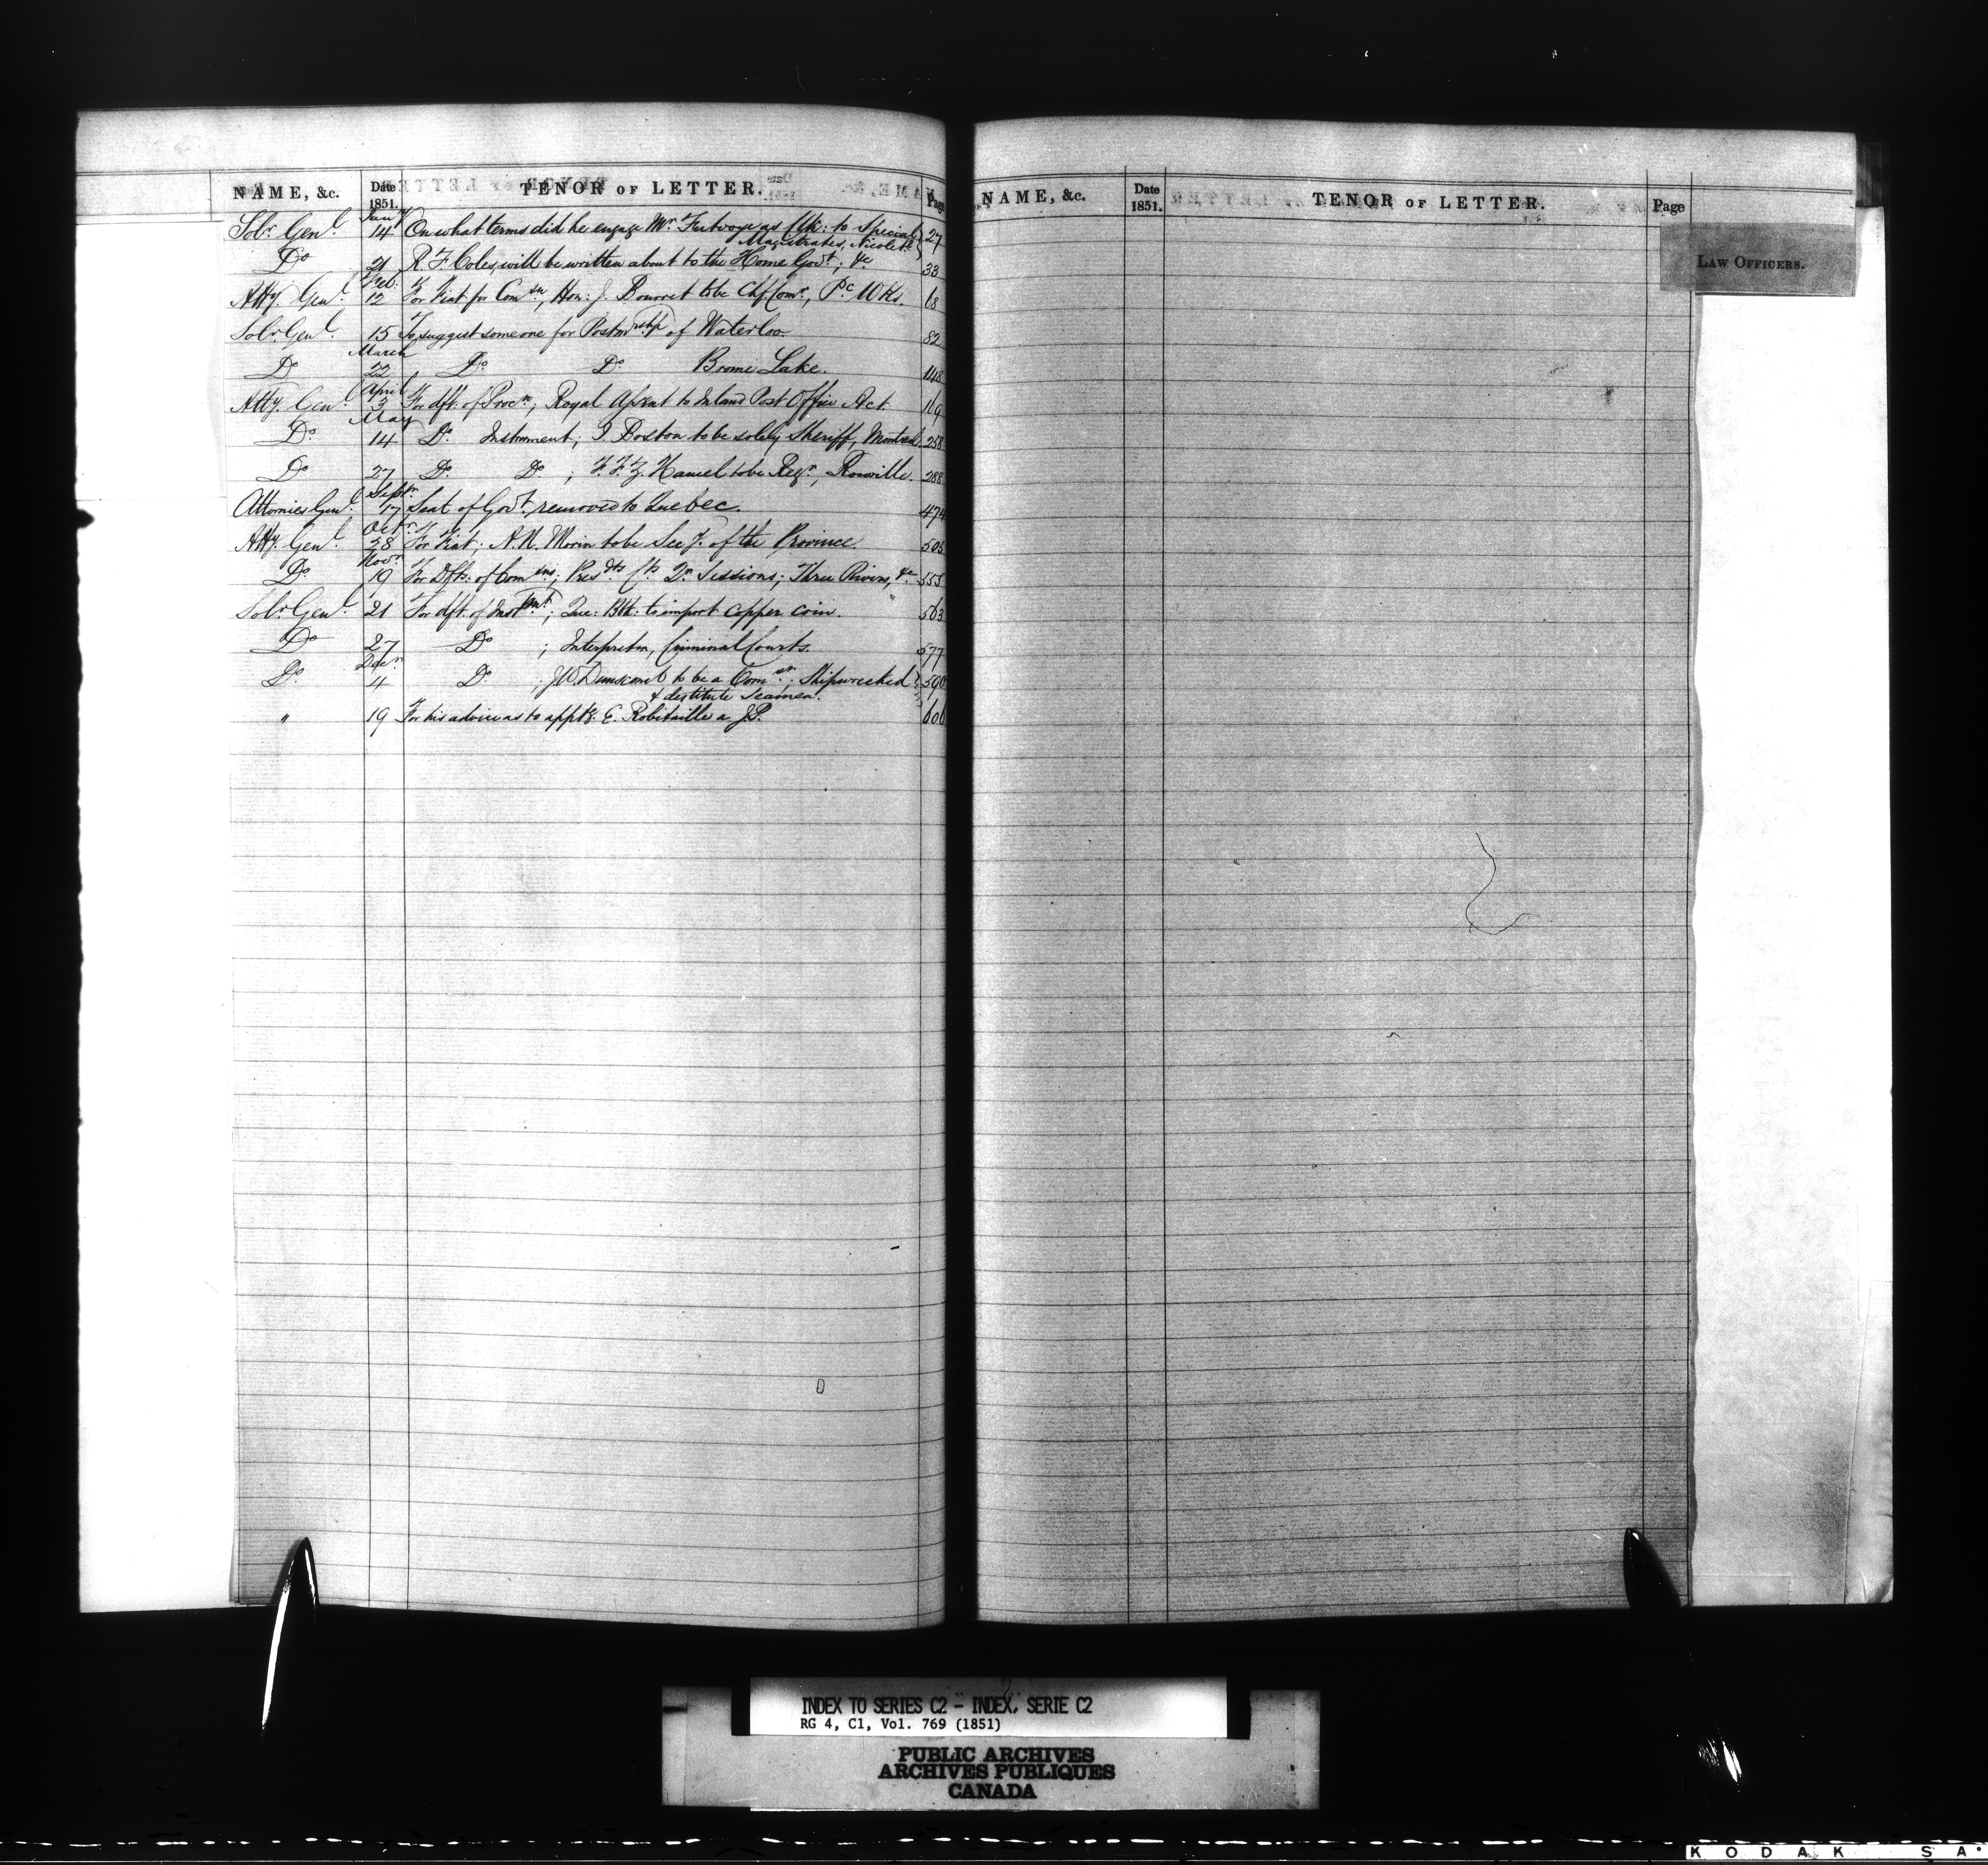 NAME, &c. Date 1851. TENOR OF LETTER. Page
Solr. Genl. Jany 14 On what terms did he engage Mr. as Clk: to Special 27
Magistrates, Nicolet
Do 21 R. F. Coles, will be written about to the Home Govt; &c 33
Atty. Genl. Feb. 12 For Fiat for Comsn, Hon: J. Bourret to be Chf. Comr, Pc. Wks. 68
Solr. Genl. 15 To suggest someone for Postmrshp of Waterloo 82
Do March 22 Do Do Brome Lake. 148
Atty. Genl. April 3 For dft. of Procn, Royal Assent to Inland Post Office Act. 169
Do May 14 Do. Instrument, J. Boston to be solely Sheriff, Montreal. 258
Do 27 Do. Do ; Hamel to be Regr, Rouville. 288
Attornies Genl. Septr. 17 Seat of Govt. removed to Quebec. 474
Atty. Genl. Octr. 28 For Fiat; A. N. Morin to be Secy. of the Province. 505
Do Novr. 19 For Dfts. of Comsns; Qr Sessions; Three Rivers, &c 553
Solr. Genl. 21 For dft. of Instmt; Que: Bk: to import copper coin. 563
Do 27 Do ; Interpreter, Criminal Courts. 577
Do. Decr. 4 Do ; J. W. Dunscomb to be a Comsr. Shipwrecked 590
& destitute Seamen.
" 19 For his advice as to apptg. E. Robitaille a J.P. 606
NAME, &c. Date 1851. TENOR OF LETTER. Page
LAW OFFICERS.
INDEX TO SERIES C2 - INDEX, SERIE C2
RG 4, C1, Vol. 769 (1851)
PUBLIC ARCHIVES
ARCHIVES PUBLIQUES
CANADA
KODAK SA